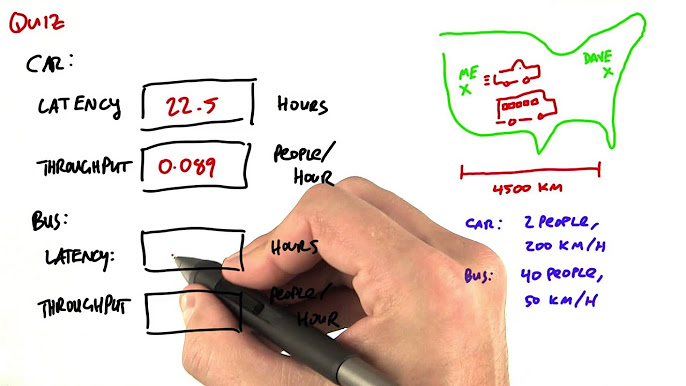 QUIZ
CAR:
LATENCY 22.5 HOURS
THROUGHPUT 0.089 PEOPLE/
HOUR
BUS:
LATENCY: HOURS
THROUGHPUT PEOPLE/
HOUR
ME
X
DAVE
X
4500 KM
CAR: 2 PEOPLE,
200 KM/H
BUS: 40 PEOPLE,
50 KM/H